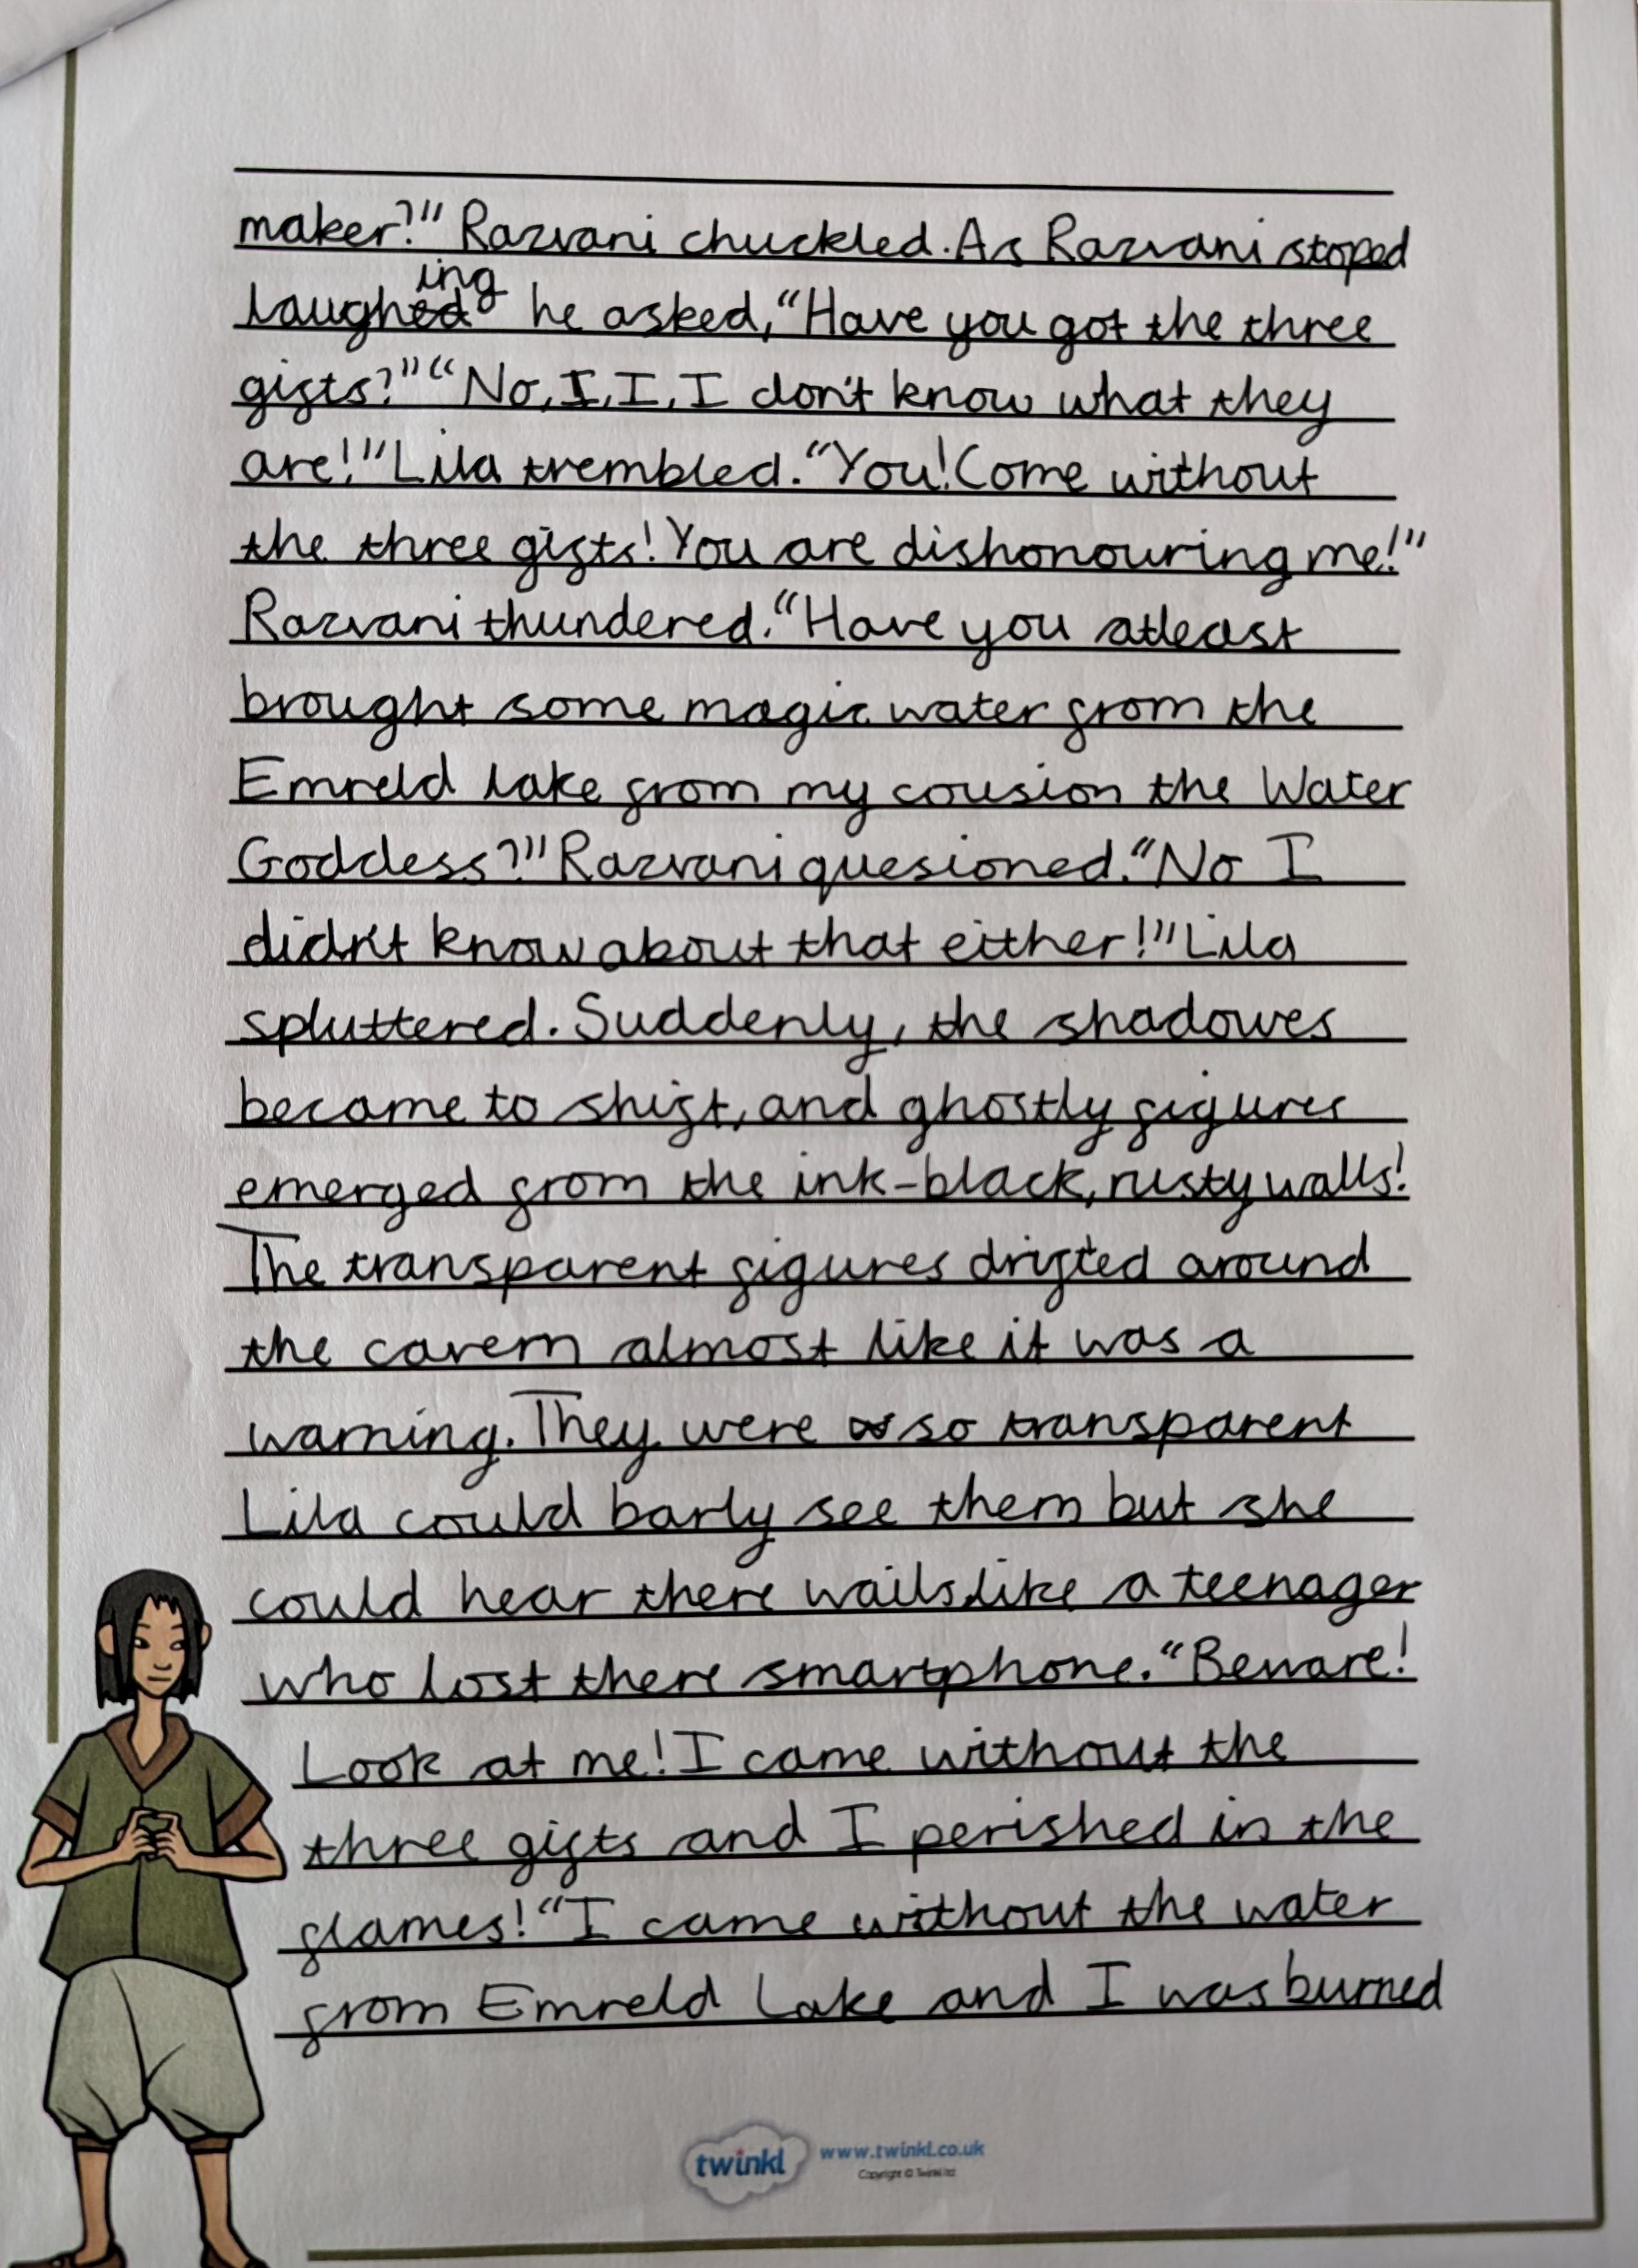 maker?" Razvani chuckled. As Razvani stoped
laughing he asked, "Have you got the three
gifts?" "No, I, I, I don't know what they
are!" Lila trembled. "You! Come without
the three gifts! You are dishonouring me!"
Razvani thundered. "Have you atleast
brought some magic water from the
Emreld lake from my cousion the Water
Goddess?" Razvani quesioned. "No I
didn't know about that either!" Lila
spluttered. Suddenly, the shadowes
became to shift, and ghostly figures
emerged from the ink-black, rusty walls!
The transparent figures drifted around
the cavern almost like it was a
warning. They were so transparent
Lila could barly see them but she
could hear there wails like a teenager
who lost there smartphone. "Beware!
Look at me! I came without the
three gifts and I perished in the
flames! "I came without the water
from Emreld Lake and I was burned
twinkl www.twinkl.co.uk
Copyright © Twinkl ltd